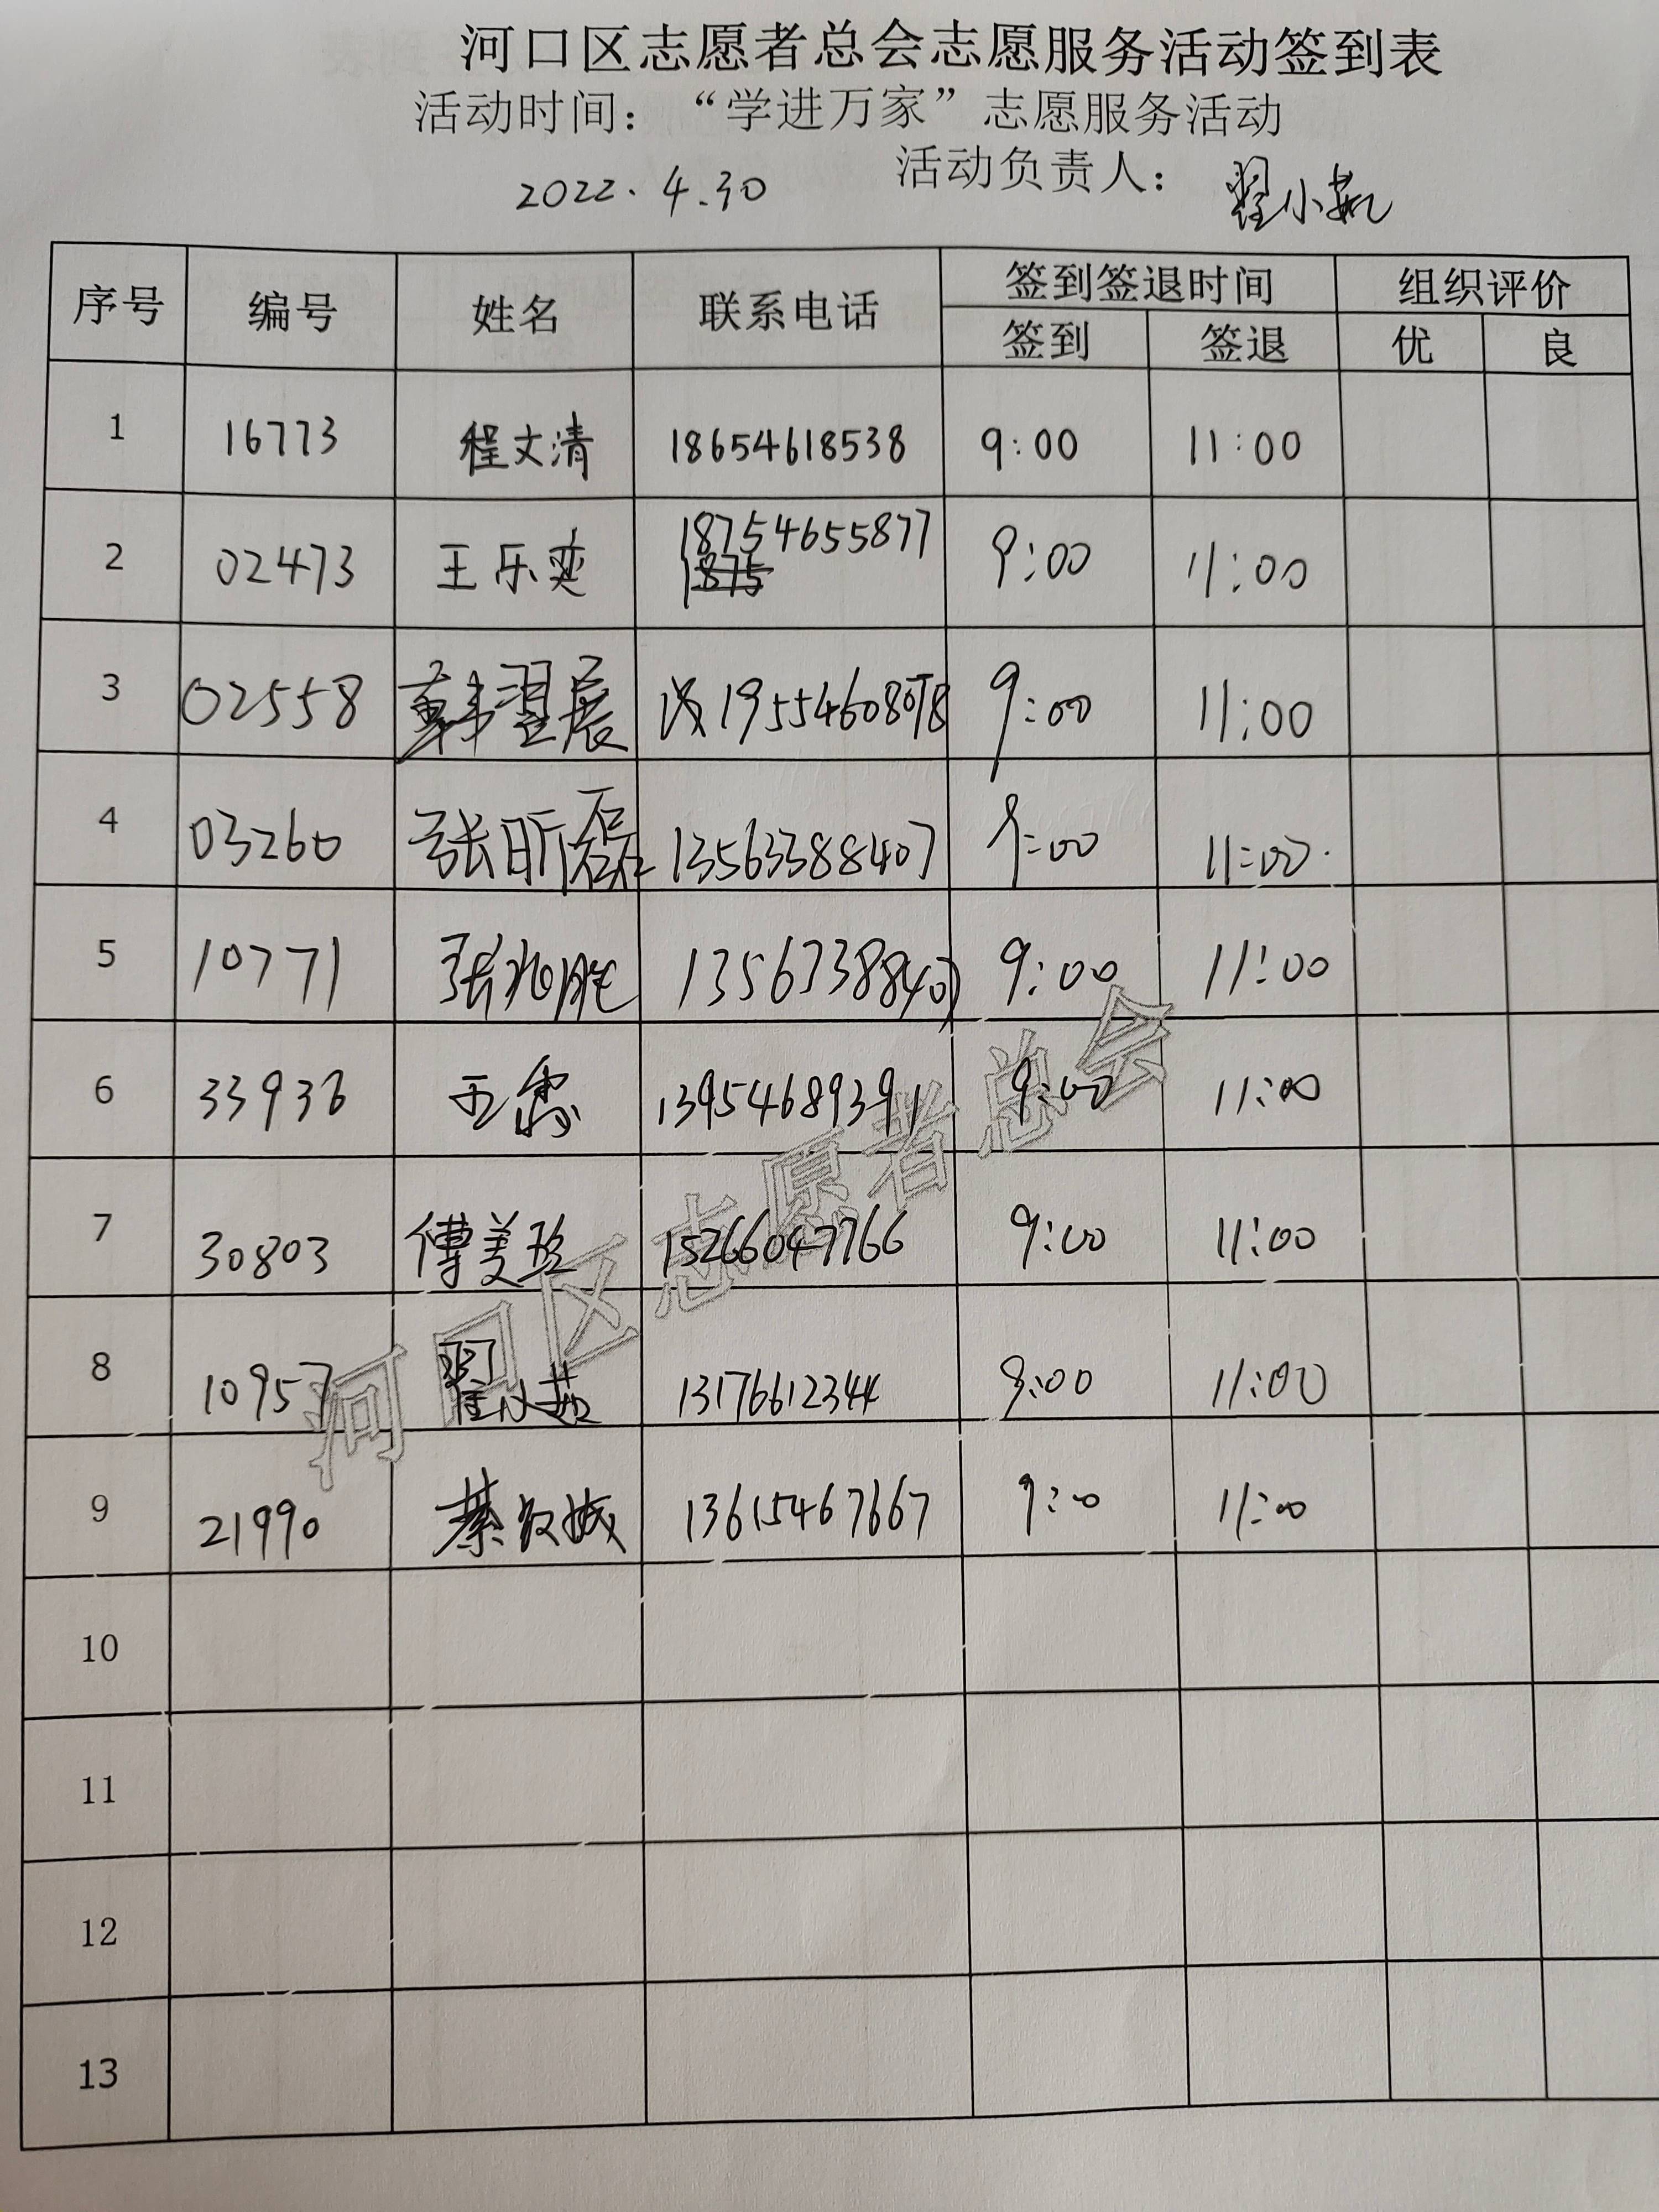 河口区志愿者总会志愿服务活动签到表
活动时间：“学进万家”志愿服务活动
2022.4.30 活动负责人： 翟小茹
序号 编号 姓名 联系电话 签到签退时间 组织评价
签到 签退 优 良
1 16773 程文清 18654618538 9:00 11:00
2 02473 王乐奕 18754655877 9:00 11:00
3 02558 翟展 195546080 9:00 11:00
4 03260 张昕磊 13563388407 9:00 11:00
5 10771 张兆胜 13563388407 9:00 11:00
6 33936 王 13954689391 9:00 11:00
7 30803 傅美珍 15266047766 9:00 11:00
8 10957 翟小茹 13176612344 9:00 11:00
9 21990 綦 13615467667 9:00 11:00
10
11
12
13
河口区志愿者总会